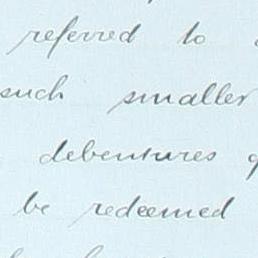 referred to
such smaller
debentures
be redeemed